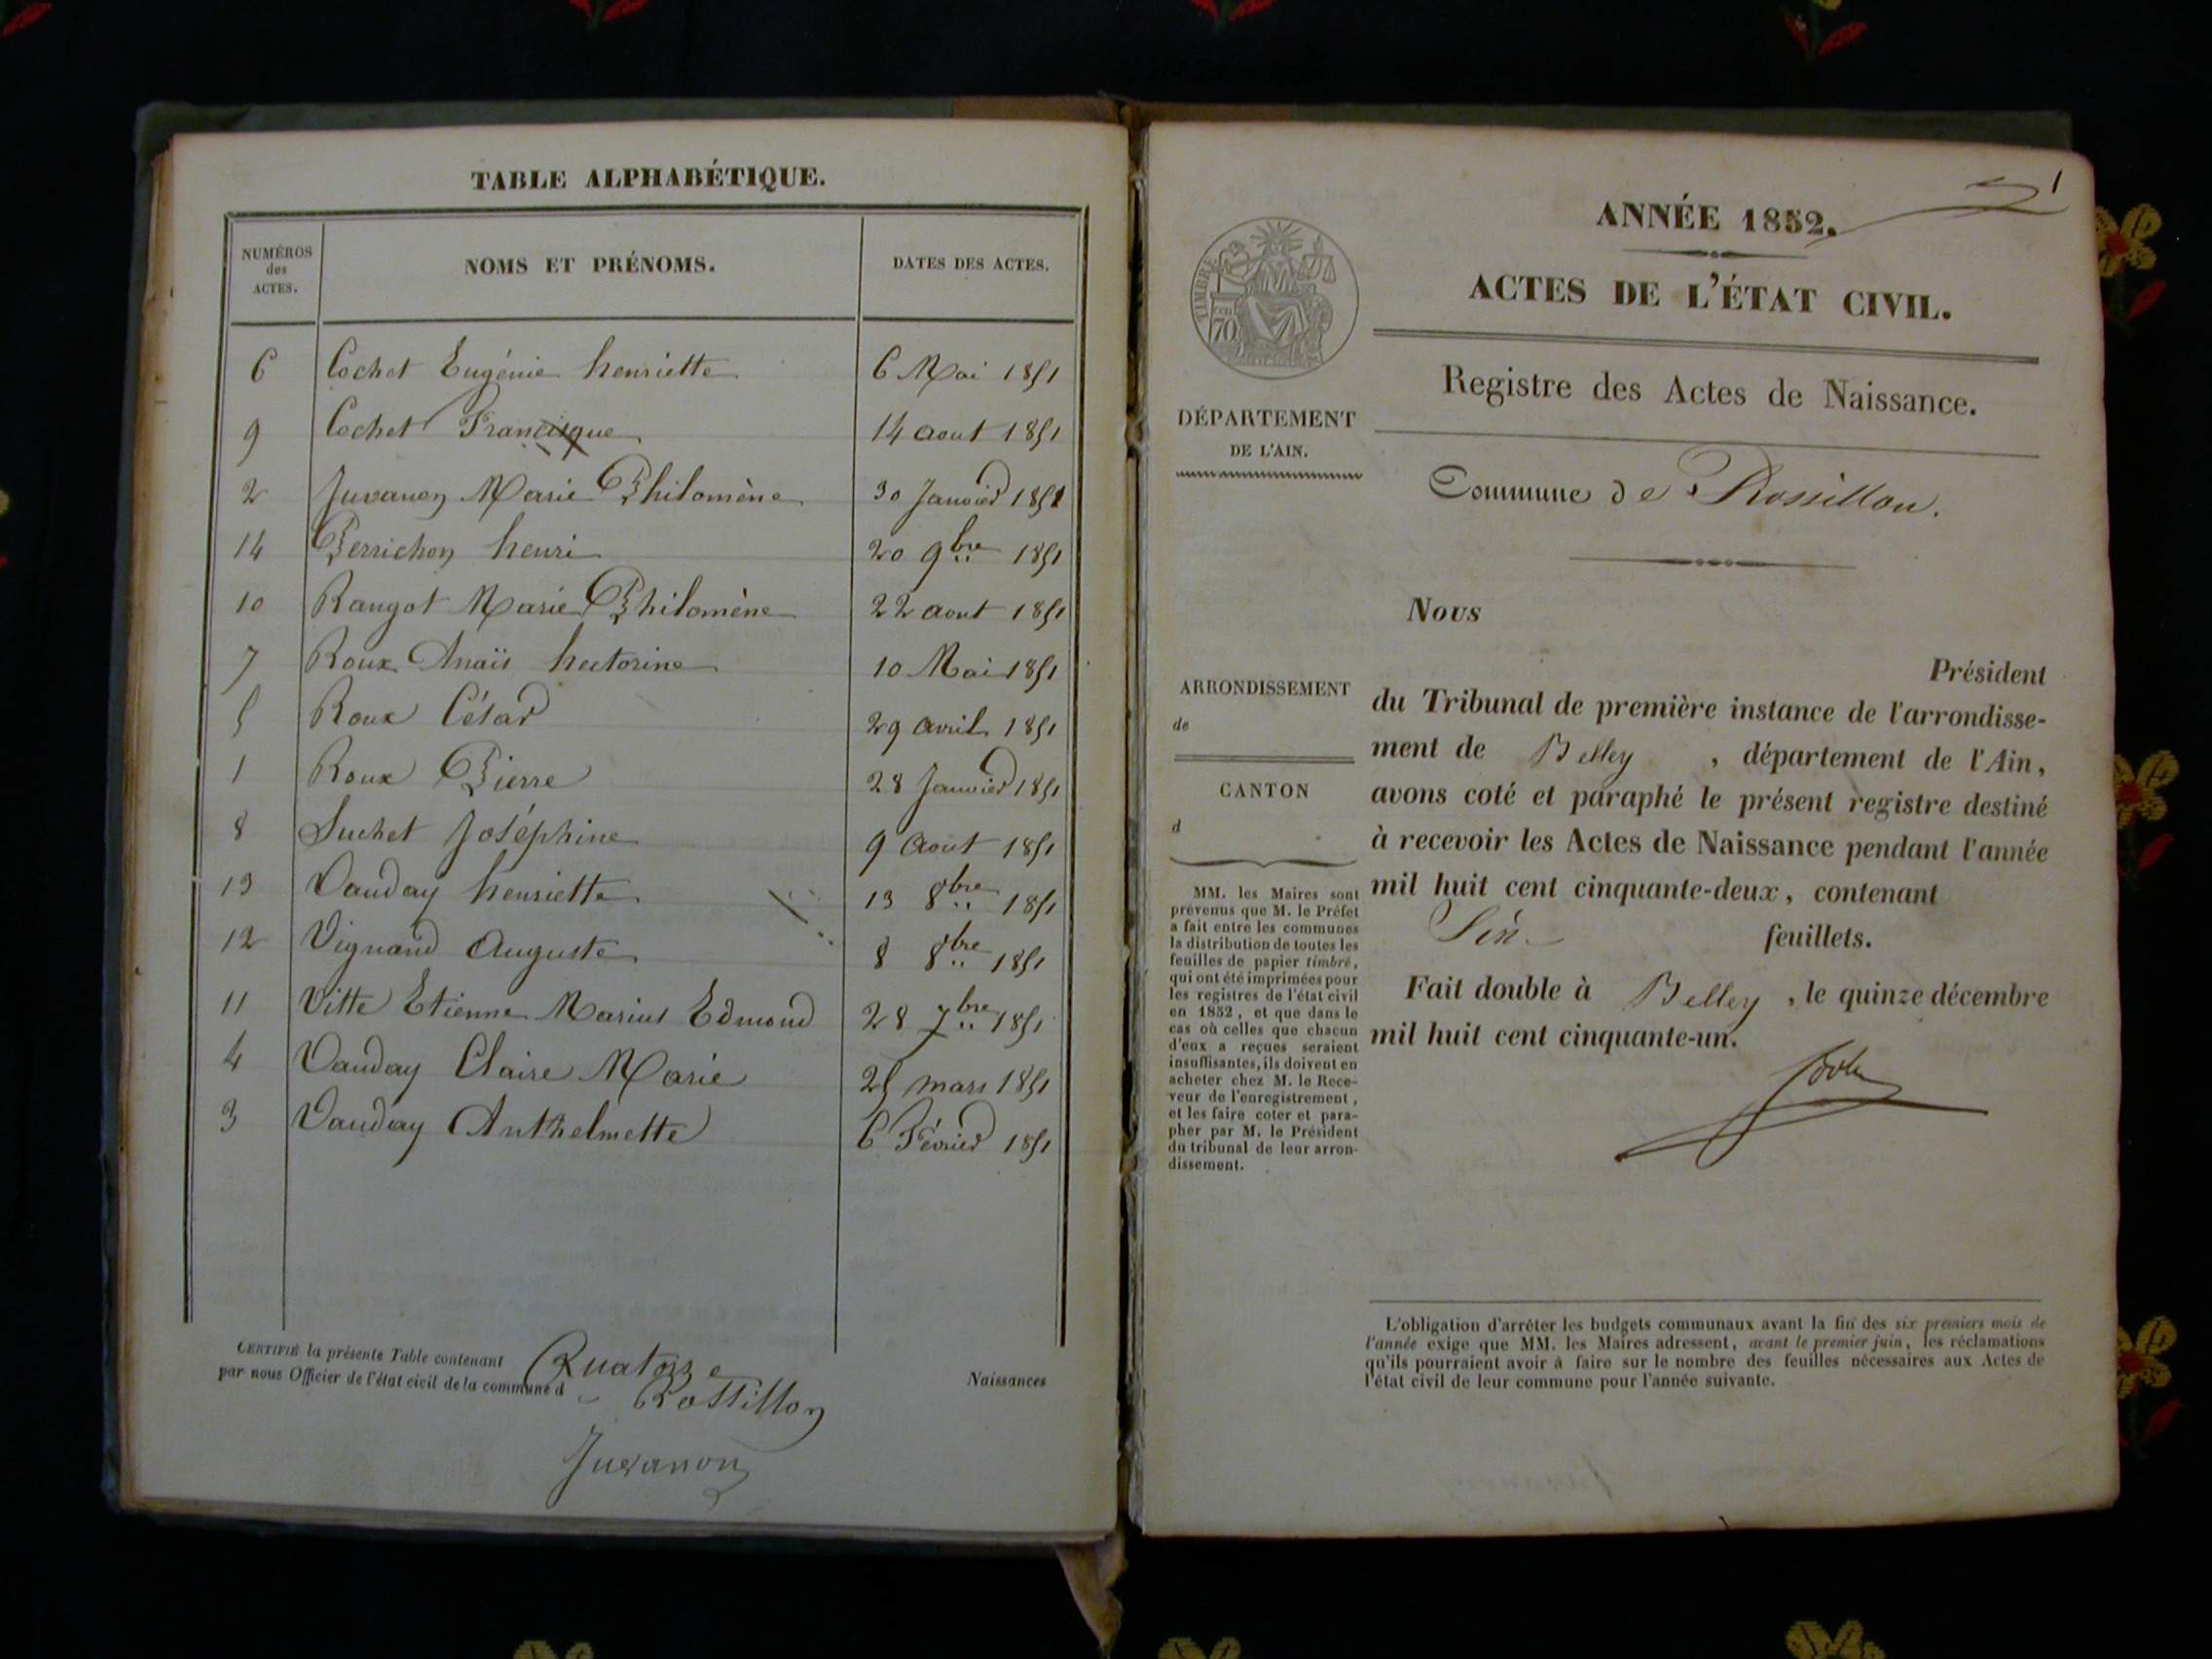 TABLE ALPHABÉTIQUE.
NUMÉROS des ACTES. NOMS ET PRÉNOMS. DATES DES ACTES.
6 Cochet Eugénie henriette 6 Mai 1851
9 Cochet Francisque 14 aout 1851
2 Juvanon Marie Philomène 30 Janvier 1851
14 Perrichon henri 20 9bre 1851
10 Rangot Marie Philomène 22 aout 1851
7 Roux Anaïs hectorine 10 Mai 1851
5 Roux César 29 avril 1851
1 Roux Pierre 28 Janvier 1851
8 Suchet Joséphine 9 Aout 1851
13 Vauday henriette 13 8bre 1851
12 Vignand Auguste 8 8bre 1851
11 Vitte Etienne Marius Edmond 28 7bre 1851
4 Vauday Claire Marie 25 mars 1851
3 Vauday Anthelmette 6 Février 1851
CERTIFIÉ la présente Table contenant Quatorze Naissances
par nous Officier de l'état civil de la commune d Rossillon
Juvanon
1
ANNÉE 1852.
ACTES DE L'ÉTAT CIVIL.
Registre des Actes de Naissance.
Commune de Rossillon.
TIMBRE
70
DÉPARTEMENT
DE L'AIN.
ARRONDISSEMENT
de
CANTON
d
MM. les Maires sont
prévenus que M. le Préfet
a fait entre les communes
la distribution de toutes les
feuilles de papier timbré,
qui ont été imprimées pour
les registres de l'état civil
en 1852, et que dans le
cas où celles que chacun
d'eux a reçues seraient
insuffisantes, ils doivent en
acheter chez M. le Rece-
veur de l'enregistrement,
et les faire coter et para-
pher par M. le Président
du tribunal de leur arron-
dissement.
Nous
Président
du Tribunal de première instance de l'arrondisse-
ment de Belley, département de l'Ain,
avons coté et paraphé le présent registre destiné
à recevoir les Actes de Naissance pendant l'année
mil huit cent cinquante-deux, contenant
Six feuillets.
Fait double à Belley, le quinze décembre
mil huit cent cinquante-un.
L'obligation d'arrêter les budgets communaux avant la fin des six premiers mois de
l'année exige que MM. les Maires adressent, avant le premier juin, les réclamations
qu'ils pourraient avoir à faire sur le nombre des feuilles nécessaires aux Actes de
l'état civil de leur commune pour l'année suivante.